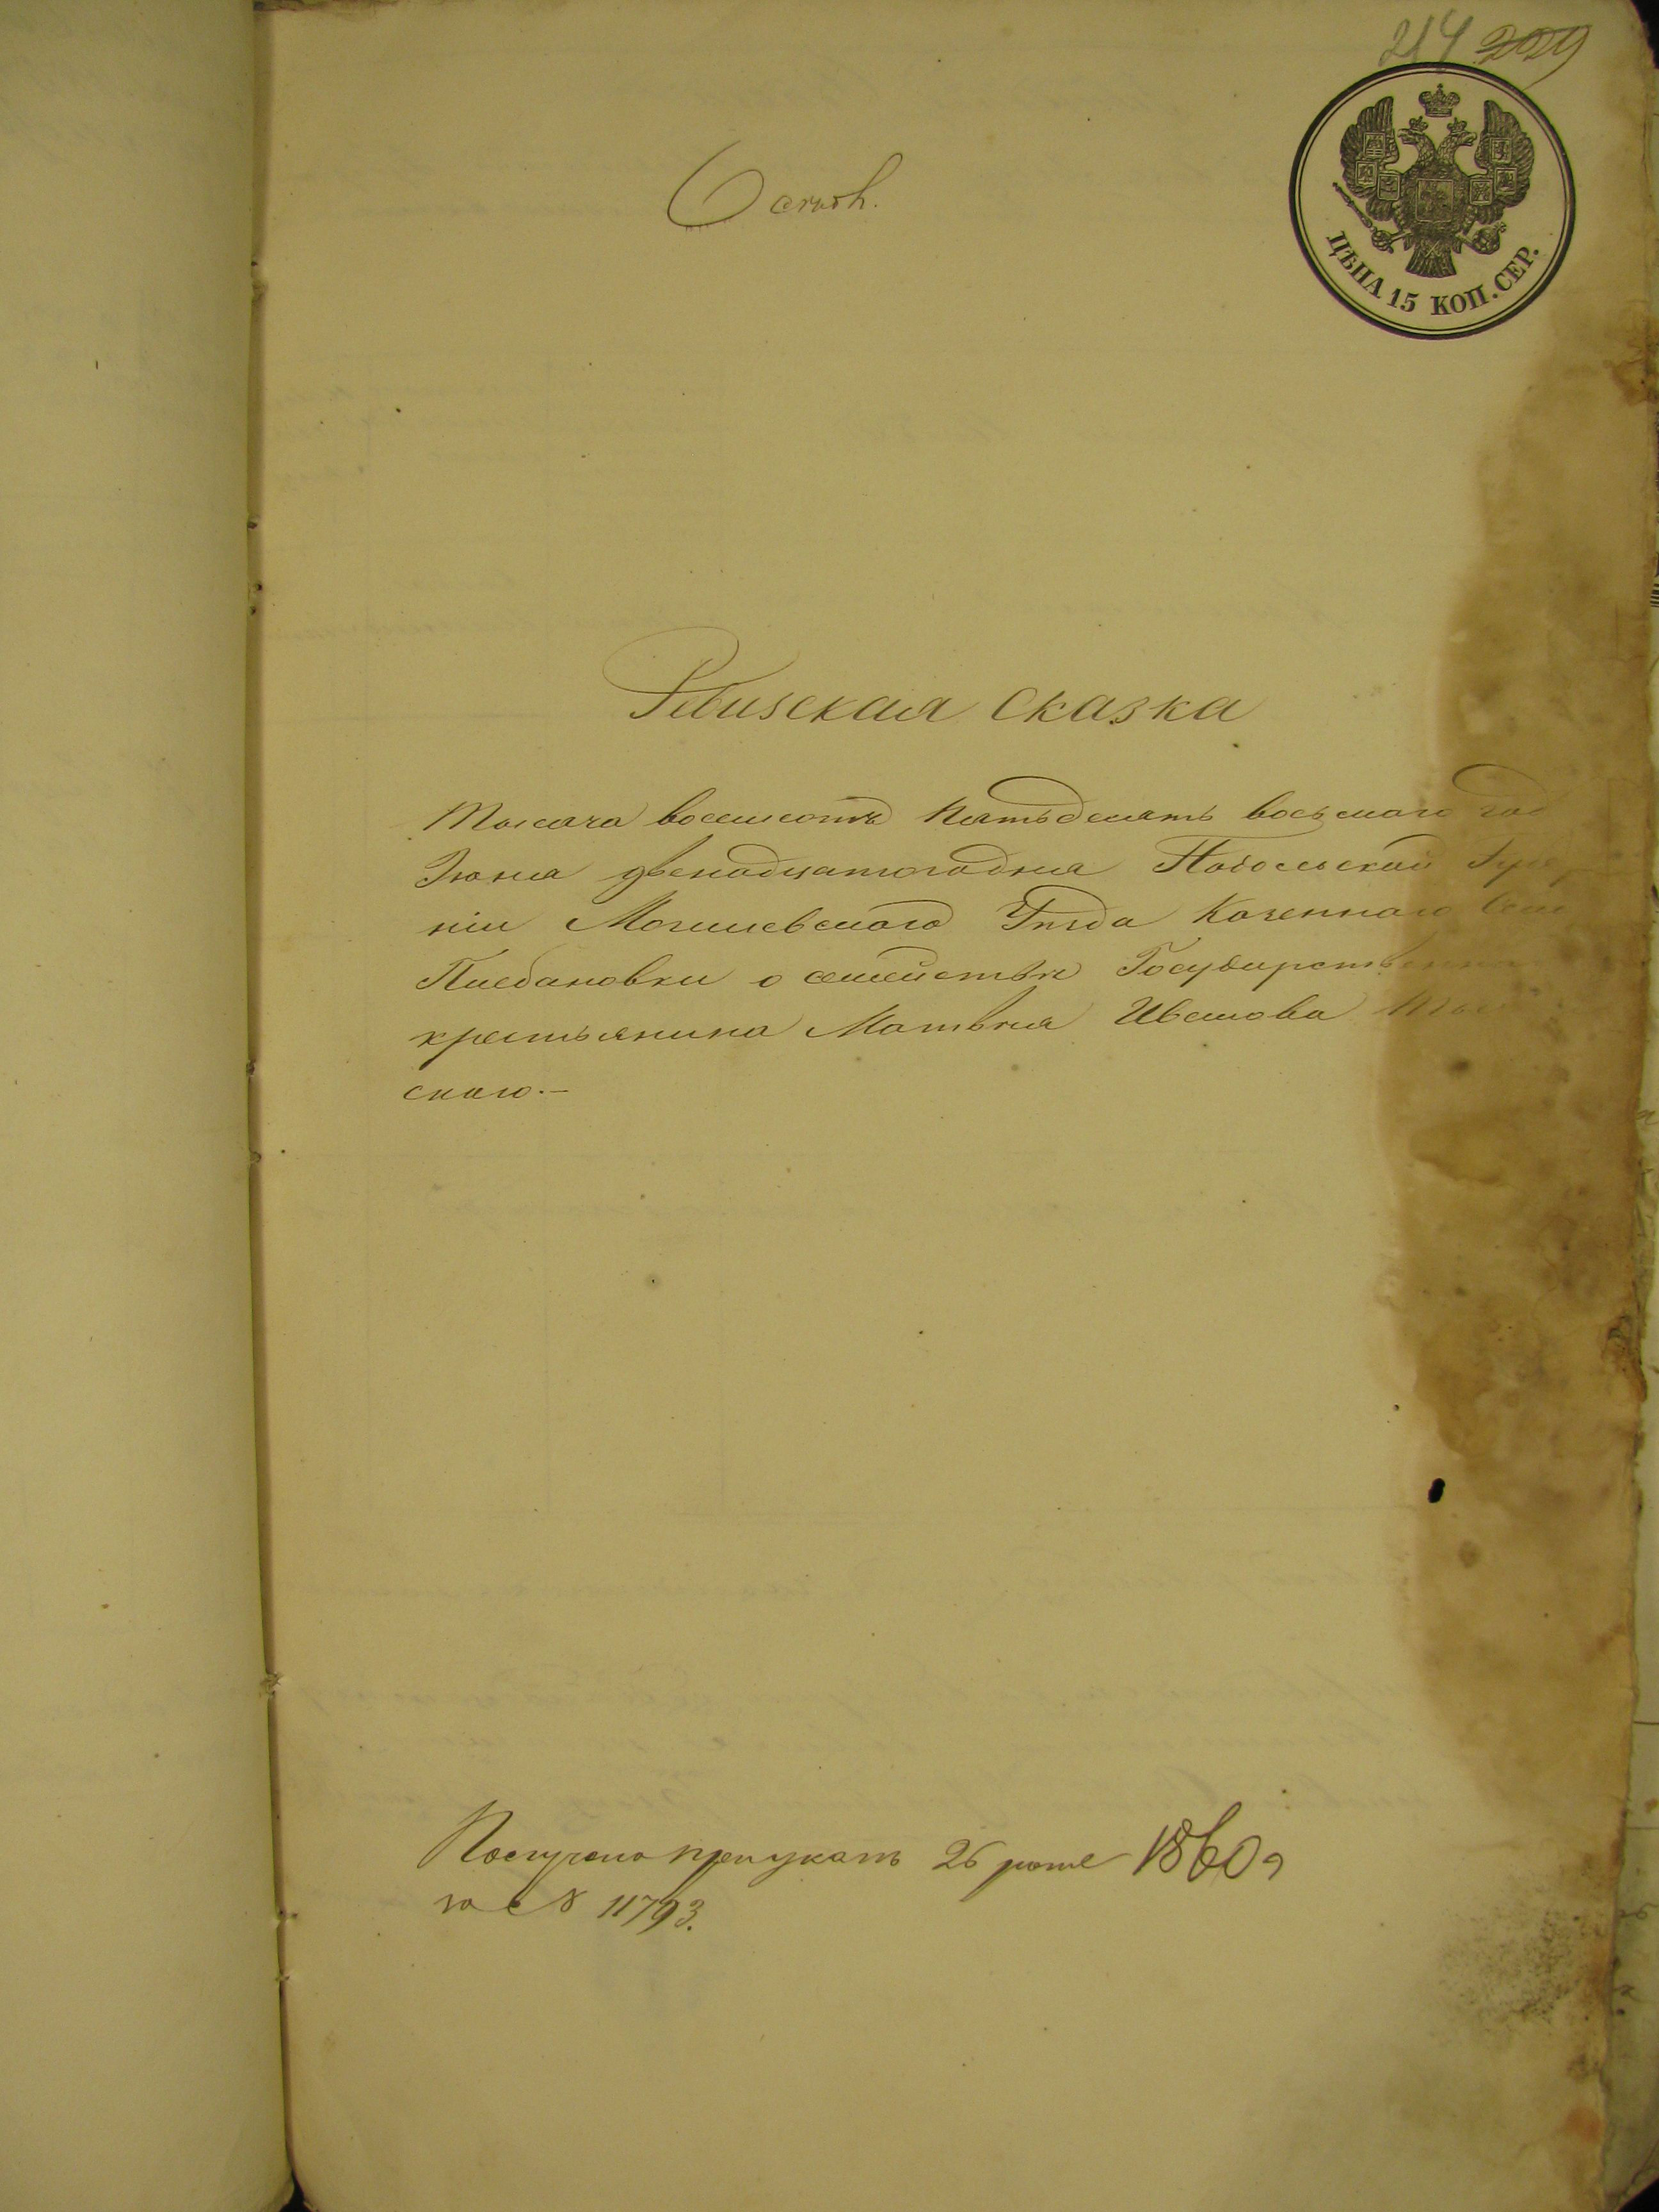 214 229
ЦѢНА 15 КОП. СЕР.
Ревизская Сказка
Тысяча восемсотъ Пятьдесятъ восьмого год
Іюня двенадцатогодня Подольской Губер
ніи Могилевского Уѣзда Казенного Сел
Плебановки о семействѣ Государственн
крестьянина Матвѣя Иванова
ского.—
Получена при указѣ 26 1860 г
за № 11793.